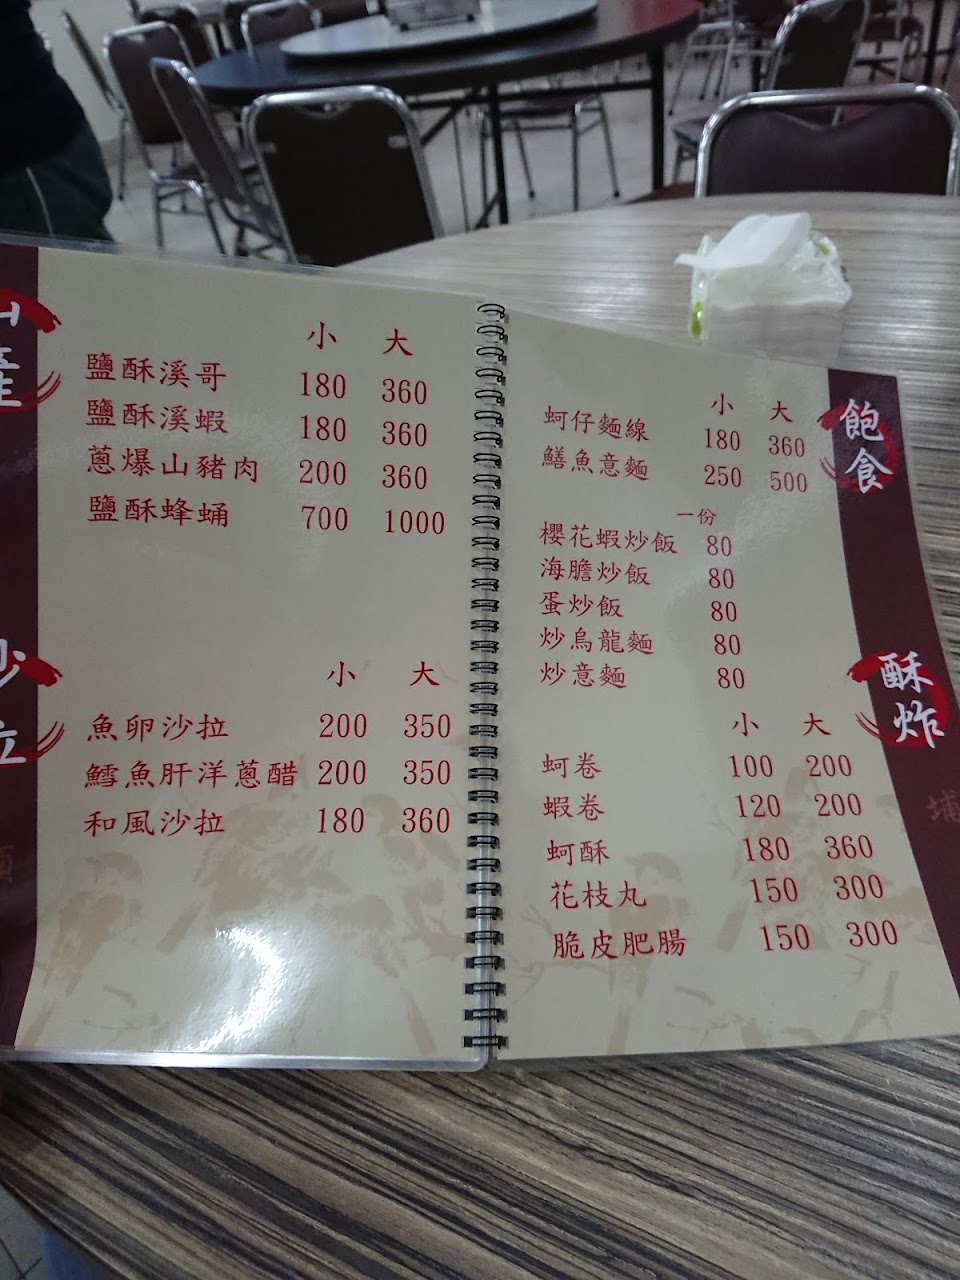 山產
小 大
鹽酥溪哥 180 360
鹽酥溪蝦 180 360
蔥爆山豬肉 200 360
鹽酥蜂蛹 700 1000
沙拉
小 大
魚卵沙拉 200 350
鱈魚肝洋蔥醋 200 350
和風沙拉 180 360
飽食
小 大
蚵仔麵線 180 360
鱔魚意麵 250 500
一份
櫻花蝦炒飯 80
海膽炒飯 80
蛋炒飯 80
炒烏龍麵 80
炒意麵 80
酥炸
小 大
蚵卷 100 200
蝦卷 120 200
蚵酥 180 360
花枝丸 150 300
脆皮肥腸 150 300
埔